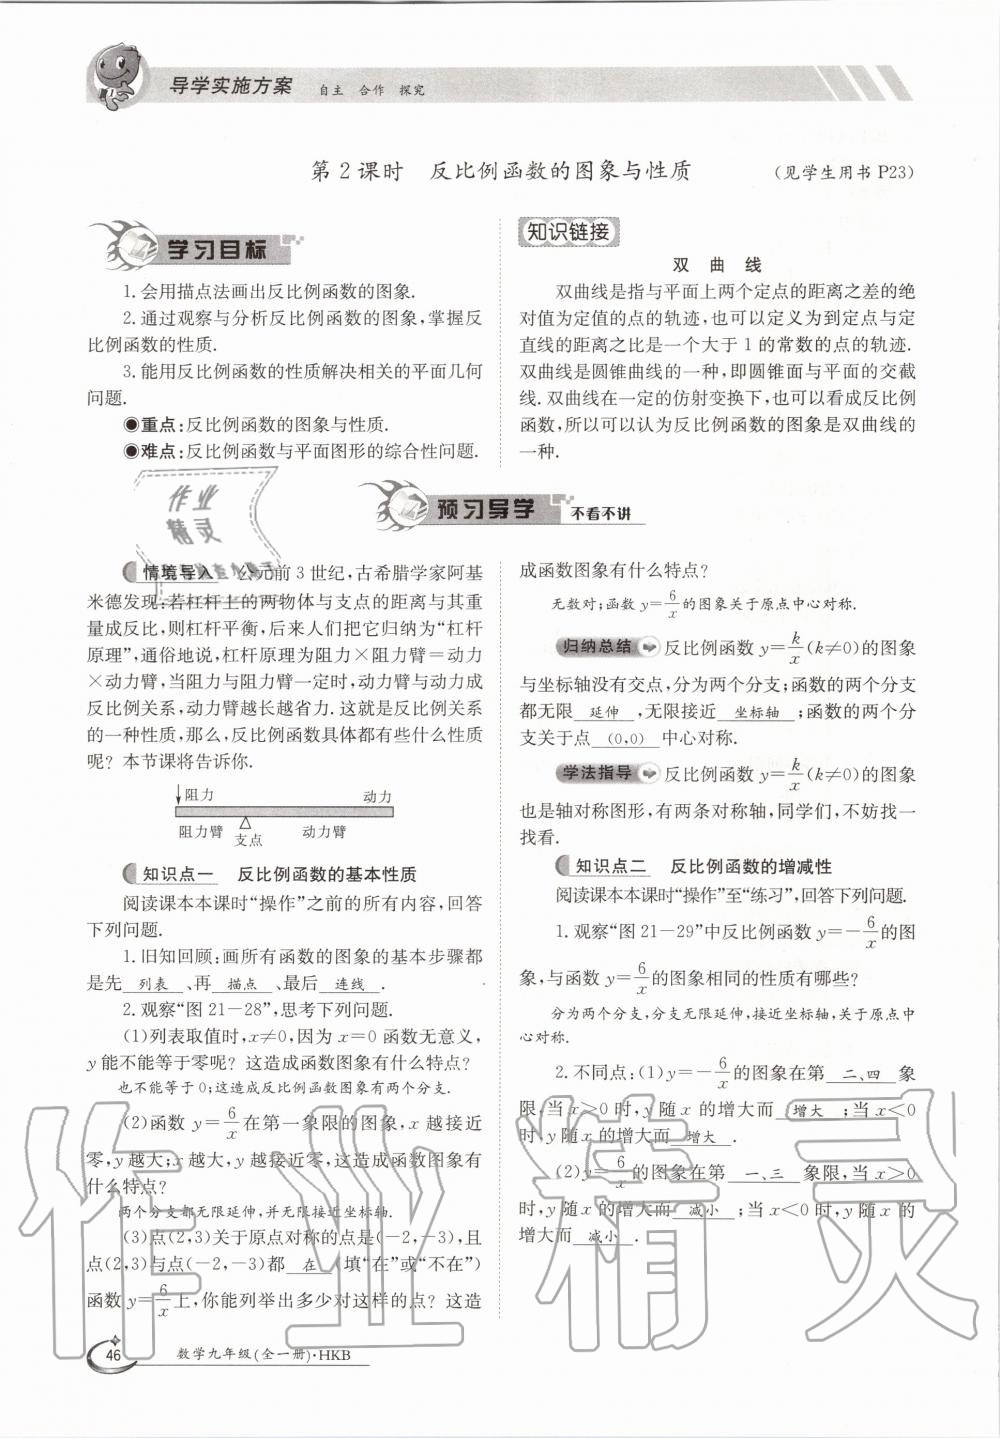 导学实施方案 自主 合作 探究
第2课时 反比例函数的图象与性质 (见学生用书 P23)
学习目标
1.会用描点法画出反比例函数的图象.
2.通过观察与分析反比例函数的图象,掌握反
比例函数的性质.
3.能用反比例函数的性质解决相关的平面几何
问题.
◉重点:反比例函数的图象与性质.
◉难点:反比例函数与平面图形的综合性问题.
知识链接
双 曲 线
双曲线是指与平面上两个定点的距离之差的绝
对值为定值的点的轨迹,也可以定义为到定点与定
直线的距离之比是一个大于 1 的常数的点的轨迹.
双曲线是圆锥曲线的一种,即圆锥面与平面的交截
线.双曲线在一定的仿射变换下,也可以看成反比例
函数,所以可以认为反比例函数的图象是双曲线的
一种.
作业
精灵
预习导学 不看不讲
情境导入 公元前 3 世纪,古希腊学家阿基
米德发现:若杠杆上的两物体与支点的距离与其重
量成反比,则杠杆平衡,后来人们把它归纳为“杠杆
原理”,通俗地说,杠杆原理为阻力×阻力臂=动力
×动力臂,当阻力与阻力臂一定时,动力臂与动力成
反比例关系,动力臂越长越省力.这就是反比例关系
的一种性质,那么,反比例函数具体都有些什么性质
呢? 本节课将告诉你.
阻力 动力
阻力臂 支点 动力臂
知识点一 反比例函数的基本性质
阅读课本本课时“操作”之前的所有内容,回答
下列问题.
1.旧知回顾:画所有函数的图象的基本步骤都
是先 列表 、再 描点 、最后 连线 .
2.观察“图 21-28”,思考下列问题.
(1)列表取值时,x≠0,因为 x=0 函数无意义,
y 能不能等于零呢? 这造成函数图象有什么特点?
也不能等于 0;这造成反比例函数图象有两个分支.
(2)函数 y=6/x 在第一象限的图象,x 越接近
零,y 越大;x 越大,y 越接近零,这造成函数图象有
什么特点?
两个分支都无限延伸,并无限接近坐标轴.
(3)点(2,3)关于原点对称的点是(-2,-3),且
点(2,3)与点(-2,-3)都 在 (填“在”或“不在”)
函数 y=6/x 上,你能列举出多少对这样的点? 这造
成函数图象有什么特点?
无数对;函数 y=6/x 的图象关于原点中心对称.
归纳总结 反比例函数 y=k/x(k≠0)的图象
与坐标轴没有交点,分为两个分支;函数的两个分支
都无限 延伸 ,无限接近 坐标轴 ;函数的两个分
支关于点 (0,0) 中心对称.
学法指导 反比例函数 y=k/x(k≠0)的图象
也是轴对称图形,有两条对称轴,同学们,不妨找一
找看.
知识点二 反比例函数的增减性
阅读课本本课时“操作”至“练习”,回答下列问题.
1.观察“图 21-29”中反比例函数 y=-6/x 的图
象,与函数 y=6/x 的图象相同的性质有哪些?
分为两个分支,分支无限延伸,接近坐标轴,关于原点中
心对称.
2.不同点:(1)y=-6/x 的图象在第 二、四 象
限,当 x>0 时,y 随 x 的增大而 增大 ;当 x<0
时,y 随 x 的增大而 增大 .
(2)y=6/x 的图象在第 一、三 象限,当 x>0
时,y 随 x 的增大而 减小 ;当 x<0 时,y 随 x 的
增大而 减小 .
作业精灵
46 数学九年级(全一册)·HKB